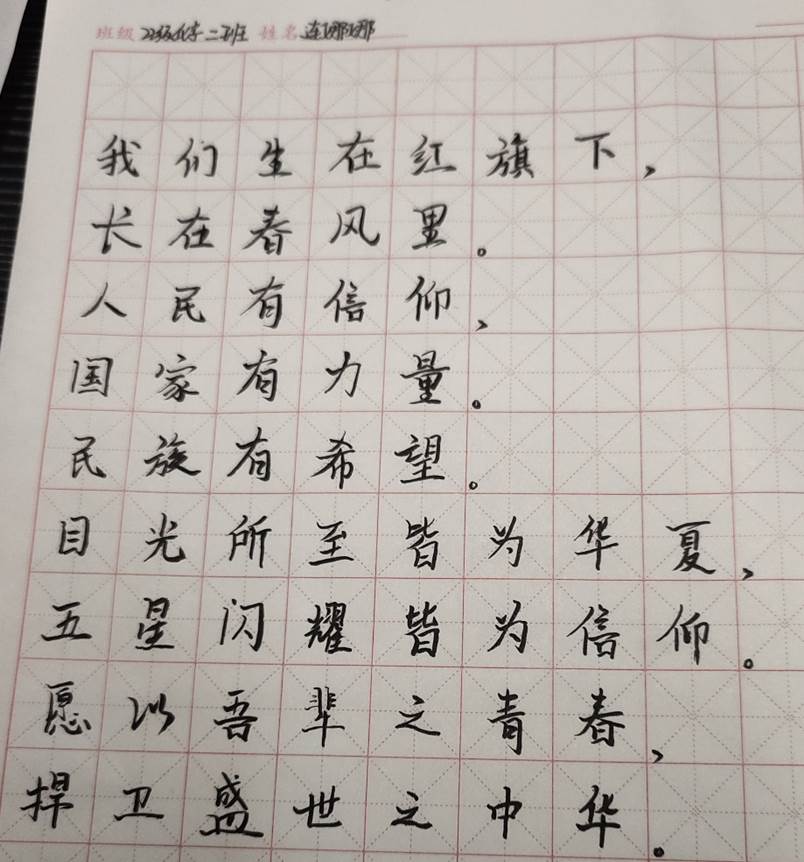 班级 22级化学二班 姓名 连娜娜
我们生在红旗下,
长在春风里。
人民有信仰,
国家有力量。
民族有希望。
目光所至皆为华夏,
五星闪耀皆为信仰。
愿以吾辈之青春,
捍卫盛世之中华。